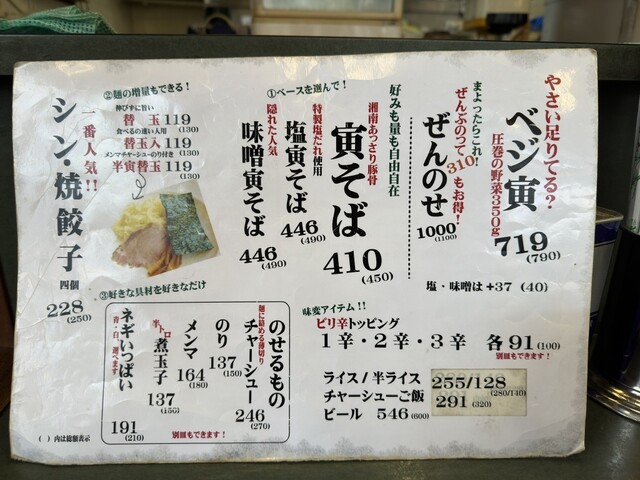 やさい足りてる?
ベジ寅
圧巻の野菜350g
719
(790)
まよったらこれ!
ぜんぶのって310もお得!
ぜんのせ
1000
(1100)
塩・味噌は +37 (40)
好みも量も自由自在
①ベースを選んで!
湘南あっさり豚骨
寅そば
410
(450)
特製塩だれ使用
塩寅そば
446
(490)
隠れた人気
味噌寅そば
446
(490)
②麺の増量もできる!
伸び子に旨い
替玉 119
(130)
食べるの速い人用
替玉入 119
(130)
メンマチャーシューのり付き
半寅替玉 119
(130)
一番人気!!
シン・焼餃子
四個
228
(250)
③好きな具材を好きなだけ
のせるもの
麺に詰める薄切り
チャーシュー
246
(270)
のり
137
(150)
メンマ
164
(180)
半トロ
煮玉子
137
(150)
ネギいっぱい
青・白、選べます
191
(210)
別皿もできます!
味変アイテム!!
ピリ辛トッピング
1辛・2辛・3辛 各91 (100)
別皿もできます!
ライス / 半ライス 255/128
(280/140)
チャーシューご飯 291 (320)
ビール 546 (600)
( ) 内は総額表示